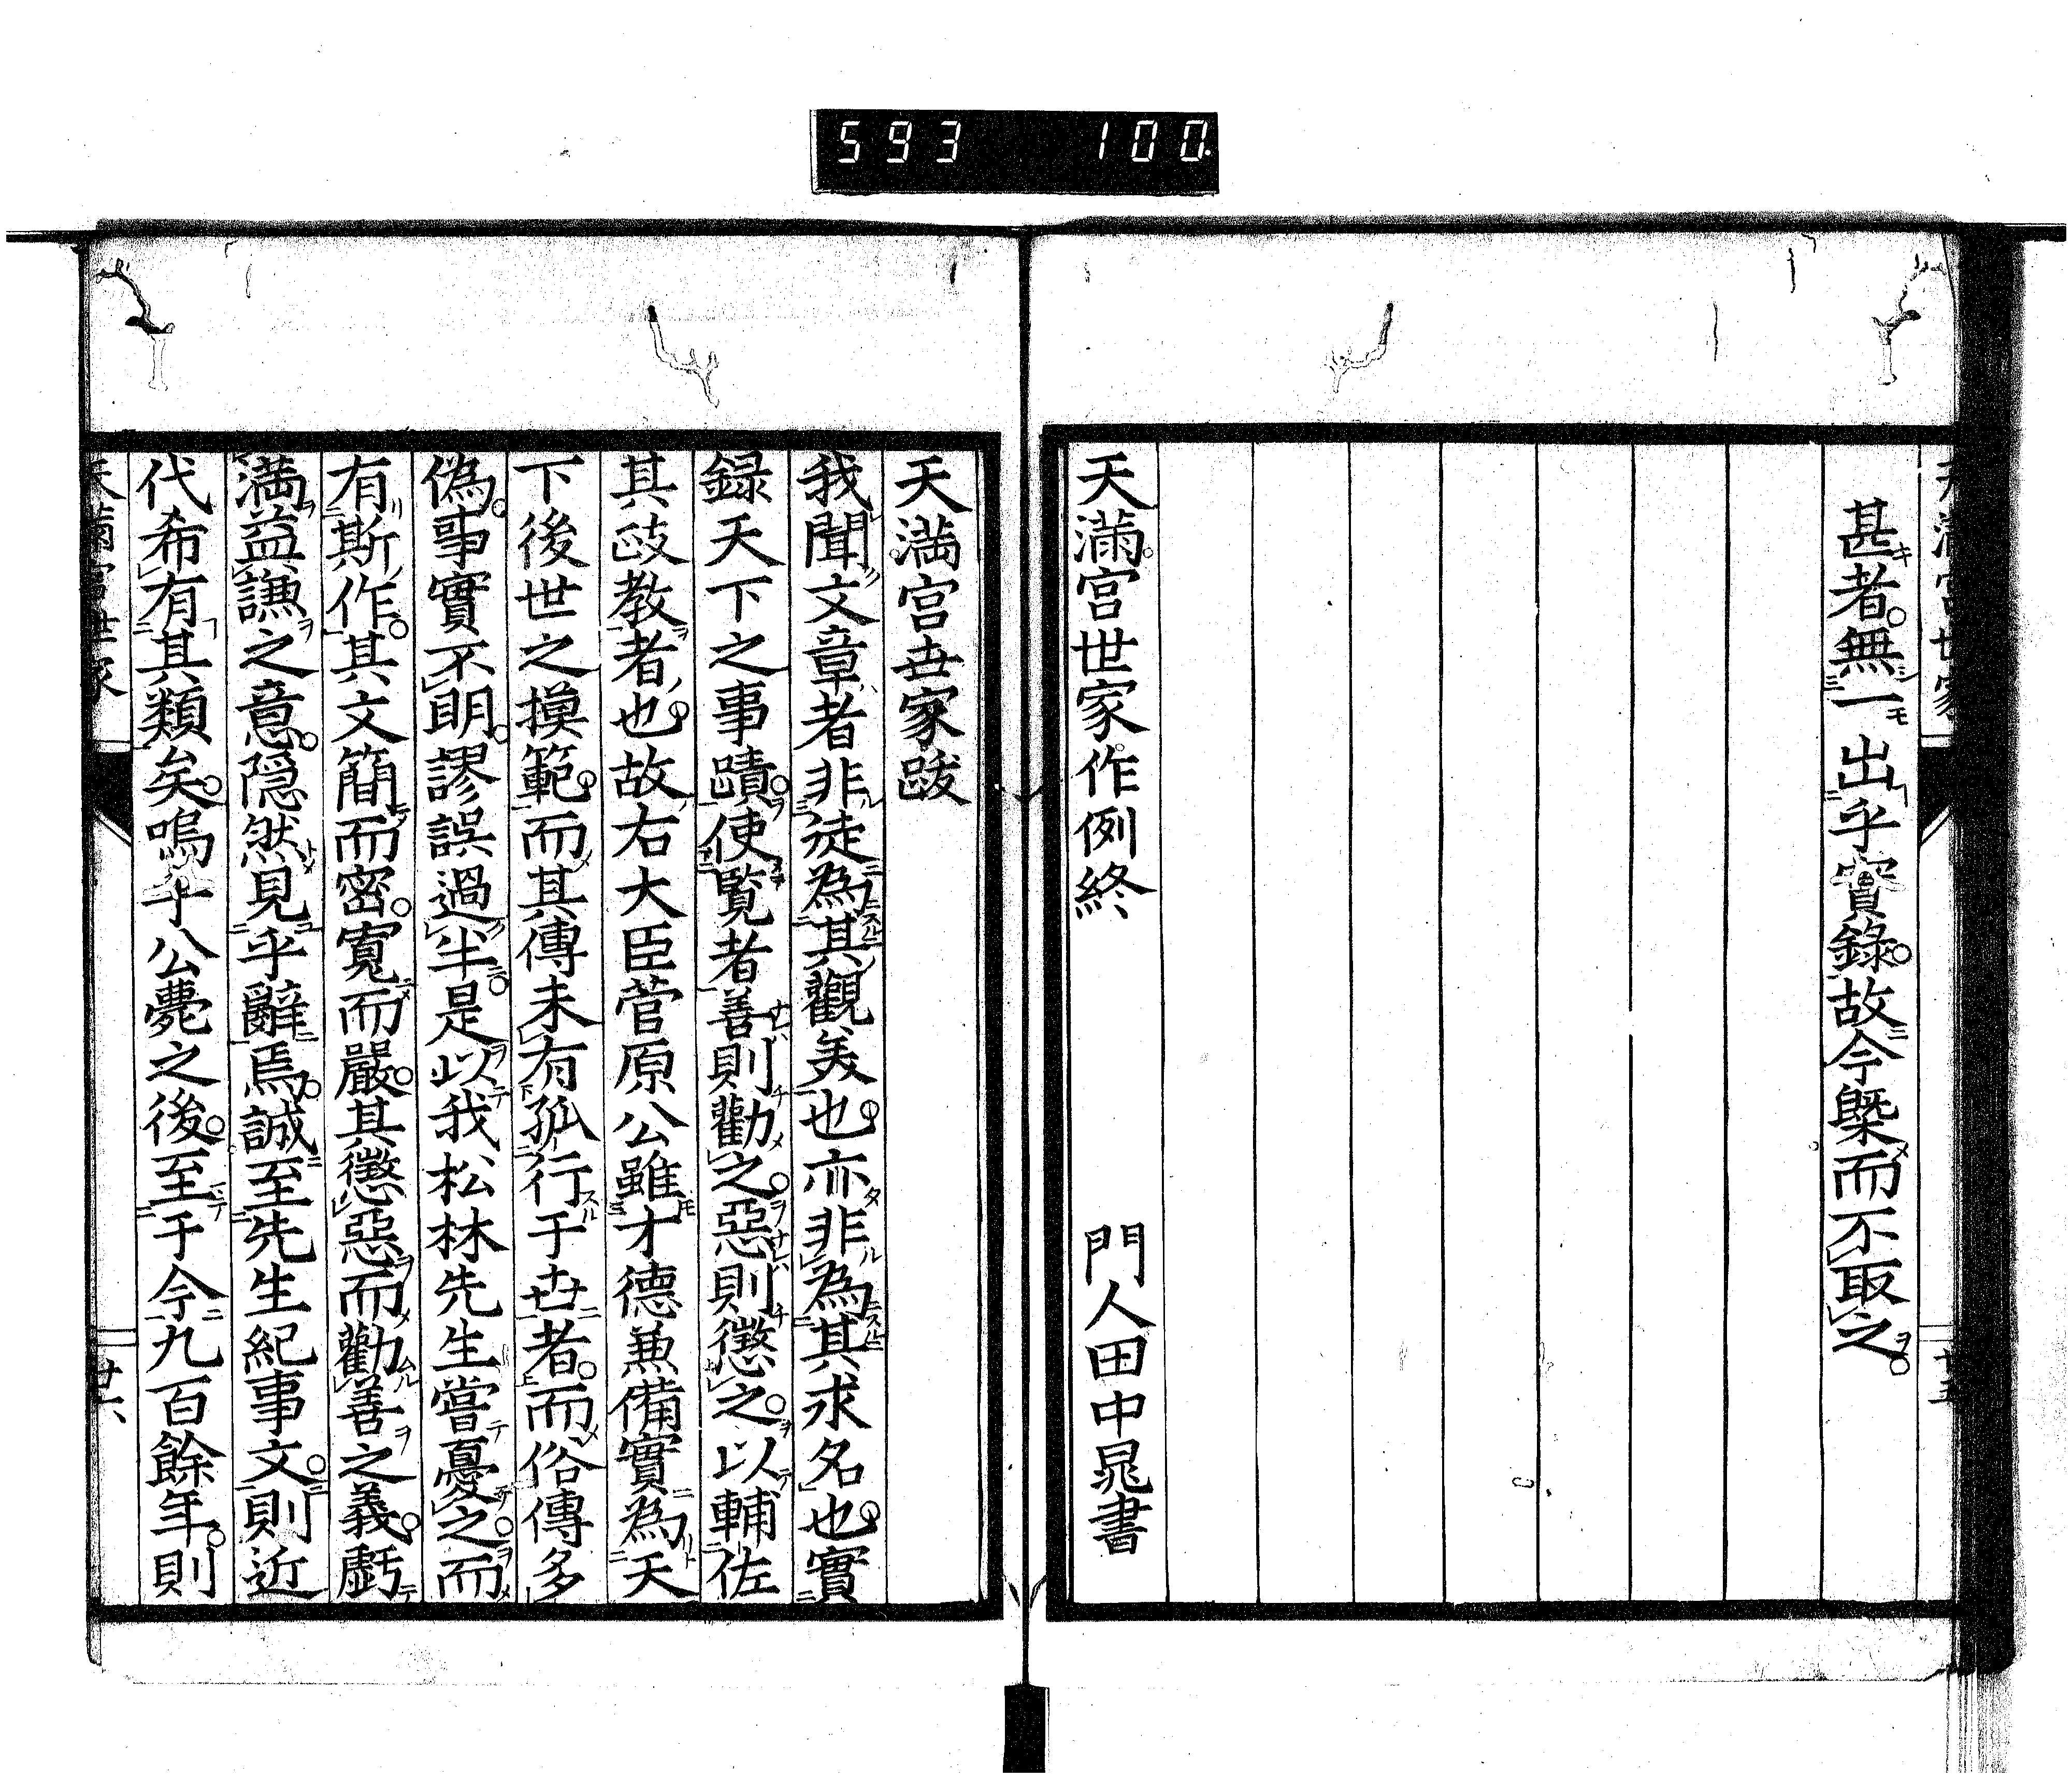 593 100
天満宮世家
甚者無一出乎實錄故今槩而不取之
廿五
天満宮世家作例終 門人田中晁書
天満宮世家跋
我聞文章者非徒為其觀美也亦非為其求名也實
録天下之事蹟使覧者善則勸之惡則懲之以輔佐
其政教者也故右大臣菅原公雖才德兼備實為天
下後世之摸範而其傳未有孤行于世者而俗傳多
偽事實不明謬誤過半是以我松林先生嘗憂之而
有斯作其文簡而密寬而嚴其懲惡而勸善之義虧
満益謙之意隠然見乎辭焉誠至先生紀事文則近
代希有其類矣嗚乎公薨之後至于今九百餘年則
天満宮世家
廿六